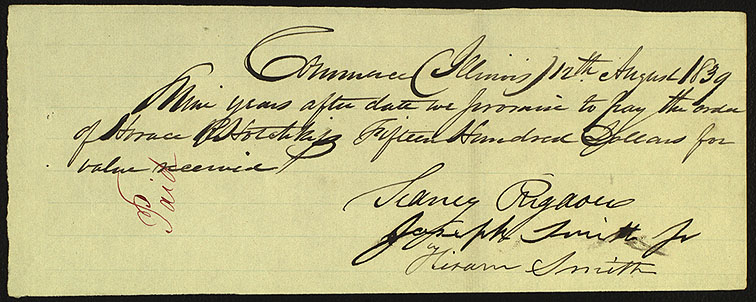 Commerce (Illinois) 12th August 1839
Nine years after date we promise to pay the order
of Horace R Hotchkiss Fifteen Hundred Dollars for
value received
Paid
Sidney Rigdon
Joseph Smith Jr
Hiram Smith